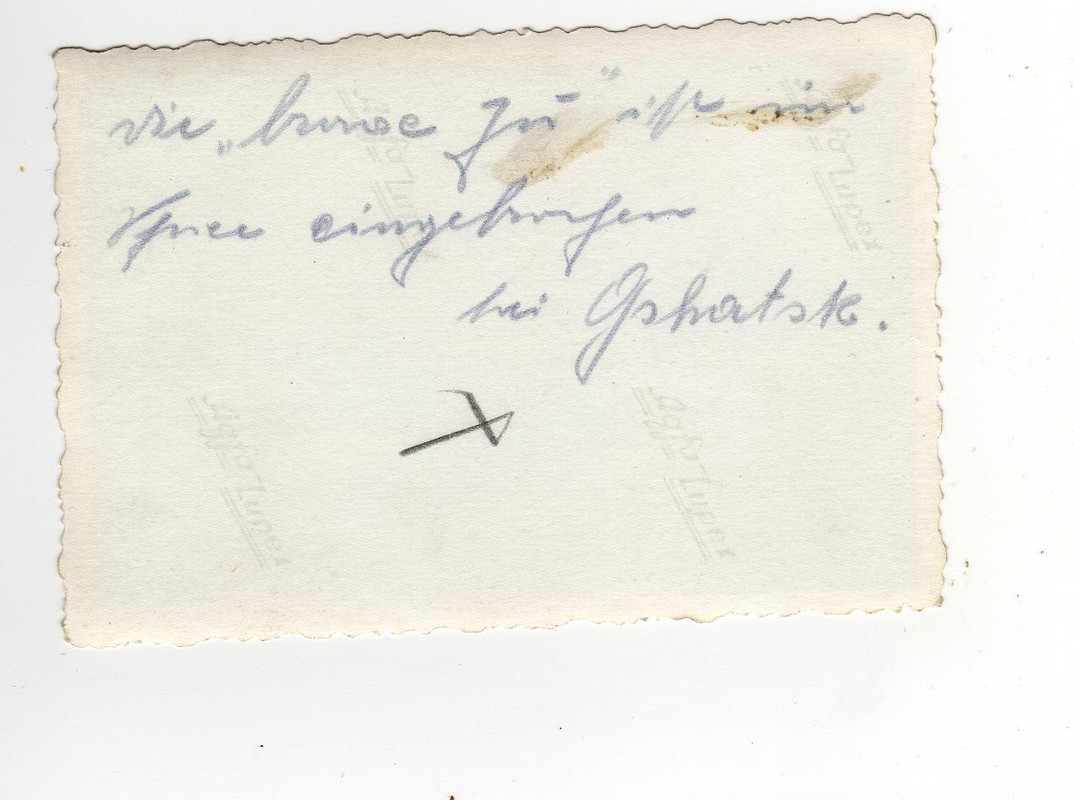 die „brave Ju“ ist im
Schnee eingebrochen
bei Gshatsk.
Agfa Lupex
Agfa Lupex
Agfa Lupex
Agfa Lupex